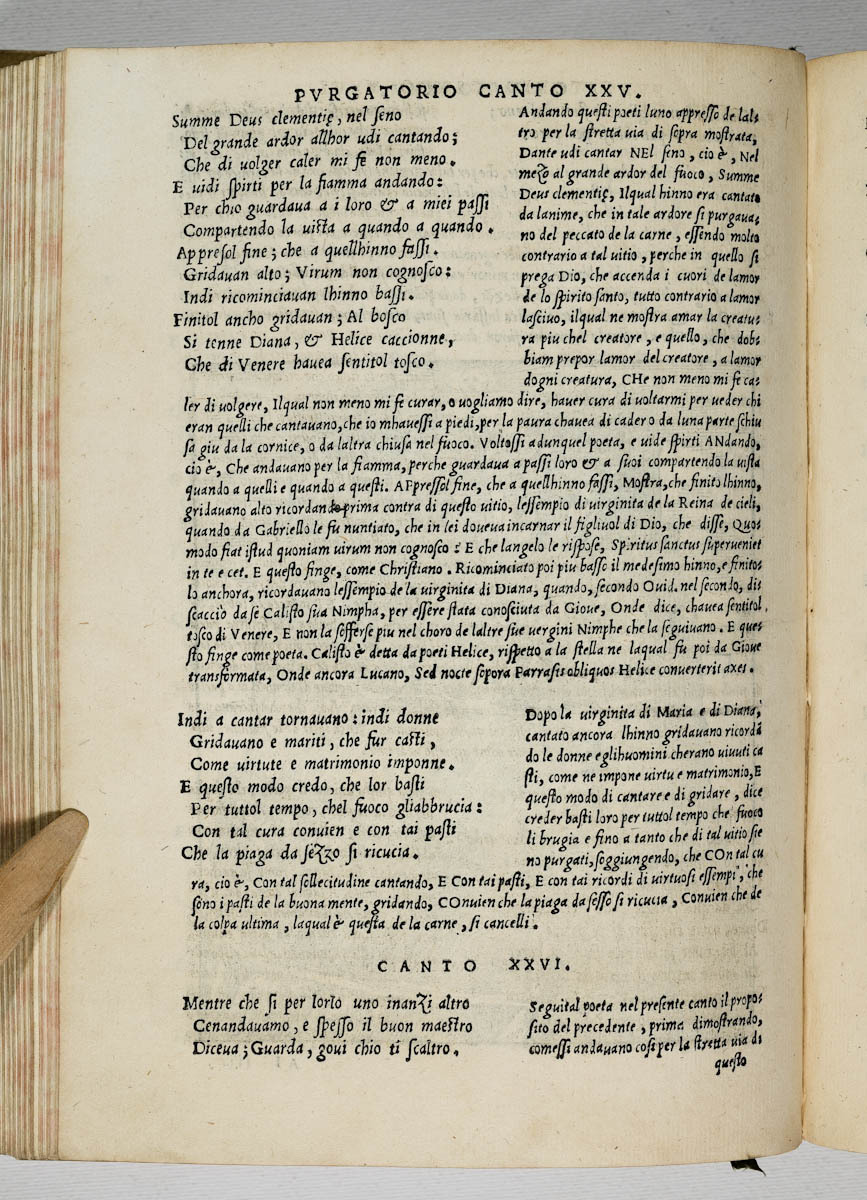 PVRGATORIO CANTO XXV.
Summe Deus clementię, nel ſeno
Del grande ardor allhor udi cantando;
Che di uolger caler mi fe non meno.
E uidi ſpirti per la fiamma andando:
Per chio guardaua a i loro & a miei paſſi
Compartendo la uiſta a quando a quando.
Appreſol fine; che a quellhinno faſſi.
Gridauan alto; Virum non cognoſco:
Indi ricominciauan lhinno baſſi.
Finitol ancho gridauan; Al boſco
Si tenne Diana, & Helice caccionne,
Che di Venere hauea ſentitol toſco.
Andando queſti poeti luno appreſſo de lal-
tro per la ſtretta uia di ſopra moſtrata,
Dante udi cantar NEl ſeno, cio è, Nel
mezo al grande ardor del fuoco, Summe
Deus clementię, Ilqual hinno era cantato
da lanime, che in tale ardore ſi purgaua-
no del peccato de la carne, eſſendo molto
contrario a tal uitio, perche in quello ſi
prega Dio, che accenda i cuori de lamor
de lo ſpirito ſanto, tutto contrario a lamor
laſciuo, ilqual ne moſtra amar la creatu-
ra piu chel creatore, e quello, che dob-
biam prepor lamor del creatore, a lamor
dogni creatura, CHe non meno mi fe ca-
ler di uolgere, Ilqual non meno mi fe curar, o uogliamo dire, hauer cura di uoltarmi per ueder chi
eran quelli che cantauano, che io mhaueſſi a piedi, per la paura chauea di cader o da luna parte ſchiu
ſa giu da la cornice, o da laltra chiuſa nel fuoco. Voltoſſi adunquel poeta, e uide ſpirti ANdando,
cio è, Che andauano per la fiamma, perche guardaua a paſſi loro & a ſuoi compartendo la uiſta
quando a quelli e quando a queſti. APpreſſol fine, che a quellhinno faſſi, Moſtra, che finito lhinno,
gridauano alto ricordando prima contra di queſto uitio, leſſempio di uirginita de la Reina de cieli,
quando da Gabriello le fu nuntiato, che in lei doueua incarnar il figliuol di Dio, che diſſe, Quo-
modo fiat iſtud quoniam uirum non cognoſco: E che langelo le riſpoſe, Spiritus ſanctus ſuperueniet
in te e cet. E queſto finge, come Chriſtiano. Ricominciato poi piu baſſo il medeſimo hinno, e finito-
lo anchora, ricordauano leſſempio de la uirginita di Diana, quando, ſecondo Ouid. nel ſecondo, di-
ſcacciò da ſe Caliſto ſua Nimpha, per eſſere ſtata conoſciuta da Gioue, Onde dice, chauea ſentitol
toſco di Venere, E non la ſofferſe piu nel choro de laltre ſue uergini Nimphe che la ſeguiuano. E que-
ſto finge come poeta. Caliſto è detta da poeti Helice, riſpetto a la ſtella ne laqual fu poi da Gioue
transformata, Onde ancora Lucano, Sed nocte ſopora Parraſis obliquos Helice conuerterit axes.
Indi a cantar tornauano: indi donne
Gridauano e mariti, che fur caſti,
Come uirtute e matrimonio imponne.
E queſto modo credo, che lor baſti
Per tuttol tempo, chel fuoco gliabbrucia:
Con tal cura conuien e con tai paſti
Che la piaga da ſezzo ſi ricucia.
Dopo la uirginita di Maria e di Diana,
cantato ancora lhinno gridauano ricordã
do le donne eglihuomini cherano uiuuti ca
ſti, come ne impone uirtu e matrimonio, E
queſto modo di cantare e di gridare, dice
creder baſti loro per tuttol tempo che fuoco
li brugia e fino a tanto che di tal uitio ſie
no purgati, ſoggiungendo, che COn tal cu
ra, cio è, Con tal ſollecitudine cantando, E Con tai paſti, E con tai ricordi di uirtuoſi eſſempi, che
ſono i paſti de la buona mente, gridando, COnuien che la piaga da ſeſſo ſi ricucia, Conuien che de
la colpa ultima, laqual è queſta de la carne, ſi cancelli.
CANTO XXVI.
Mentre che ſi per lorlo uno inanzi altro
Cenandauamo, e ſpeſſo il buon maeſtro
Diceua; Guarda, goui chio ti ſcaltro.
Seguital poeta nel preſente canto il propo-
ſito del precedente, prima dimoſtrando,
comeſſi andauano coſi per la ſtretta uia di
queſto